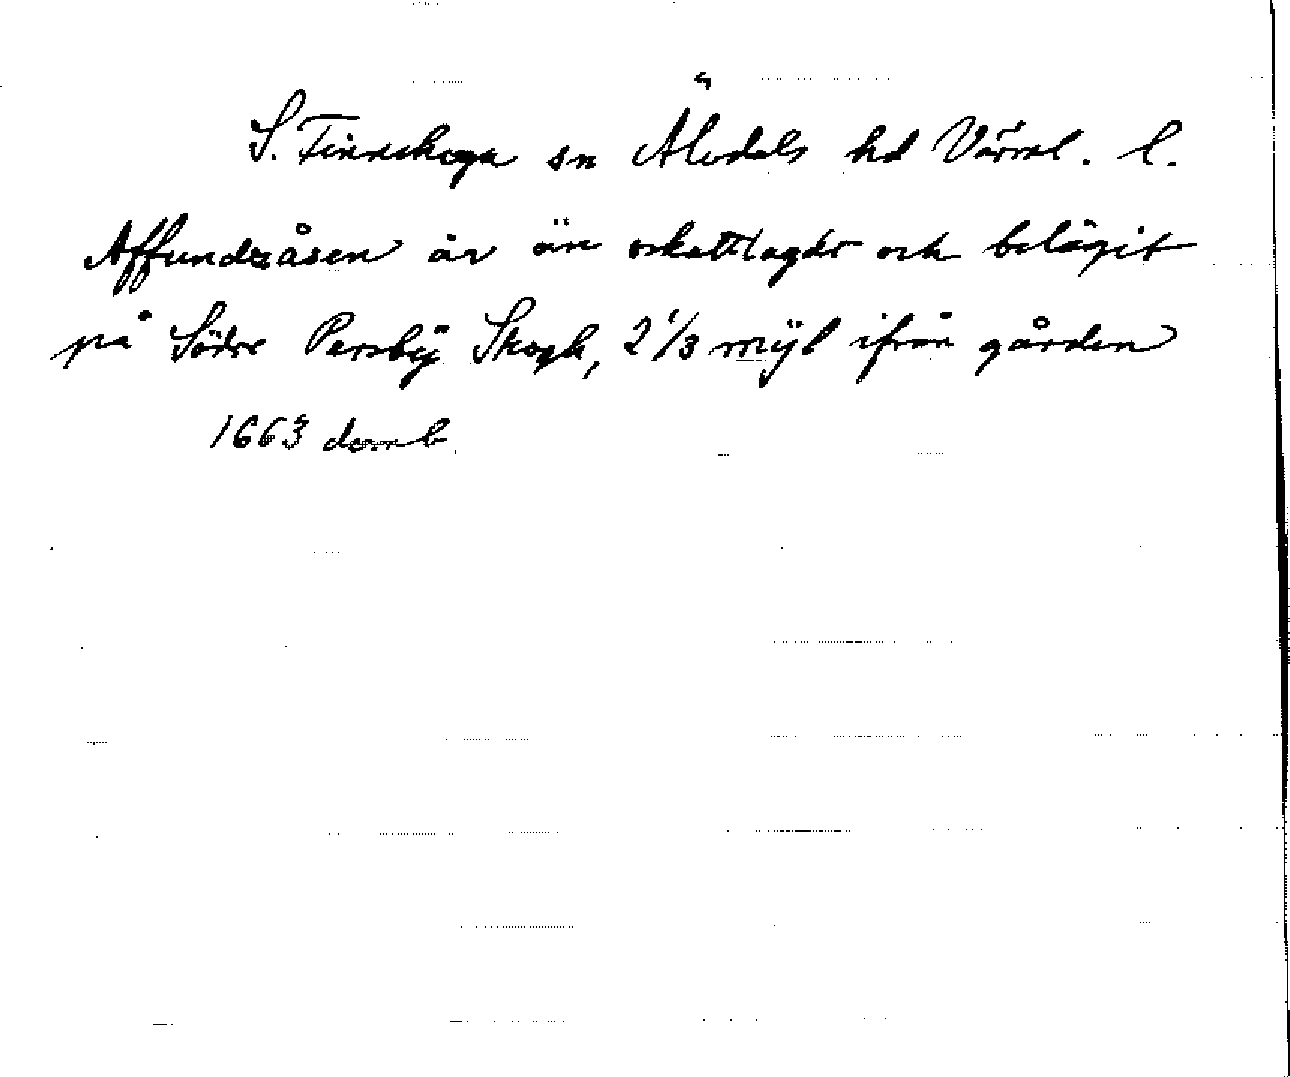 S. Finnskoga sn Älvdals hd Värml. l.
Affundzåsen är än oskattlagdt och belägit
på Södre Persbÿ Skogh, 2 1/3 mÿl ifrån gården
1663 domb.